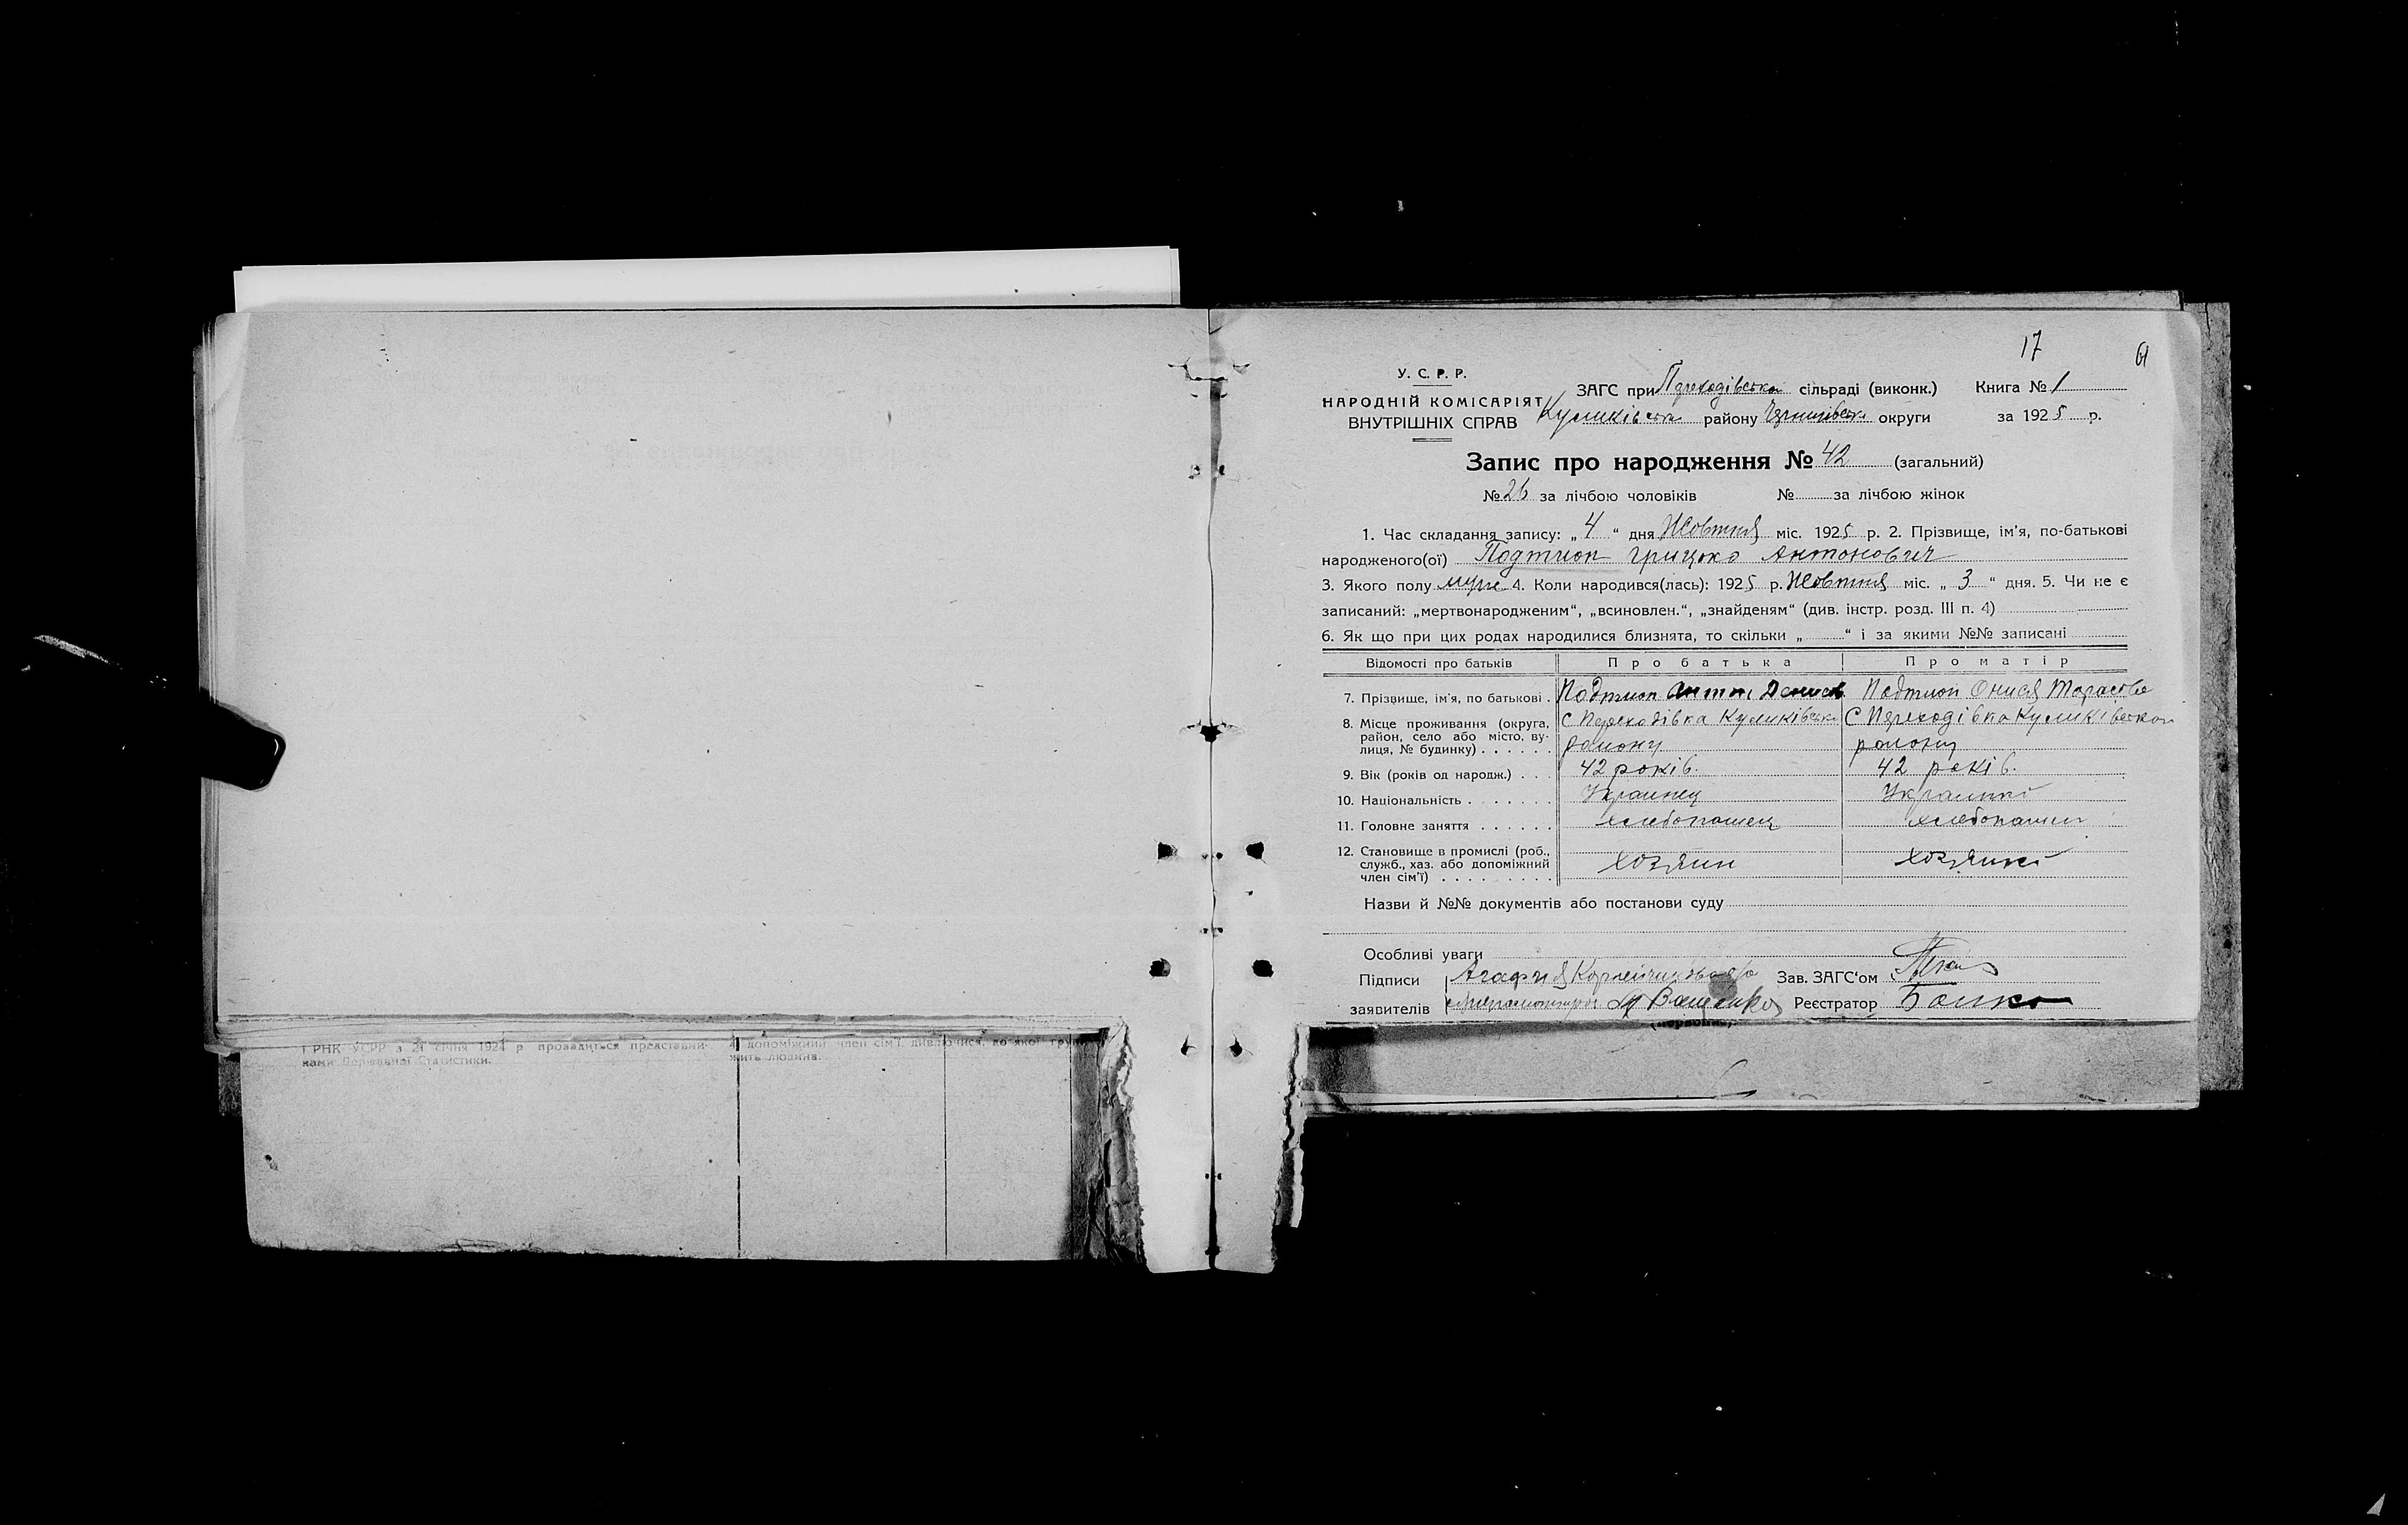 17
У. С. Р. Р.
НАРОДНІЙ КОМІСАРІЯТ
ВНУТРІШНІХ СПРАВ
ЗАГС при Переходівської сільраді (виконк.) Книга № 1
Куликівська району Чернигівськ округи за 1925 р.
Запис про народження № 42 (загальний)
№ 26 за лічбою чоловіків № за лічбою жінок
1. Час складання запису: „ 4 “ дня Жовтня міс. 1925 р. 2. Прізвище, ім'я, по-батькові
народженого(ої) Подтион Грицько Антонович
3. Якого полу муж 4. Коли народився(лась): 1925 р. Жовтня міс. „ 3 “ дня. 5. Чи не є
записаний: „мертвонародженим“, „всиновлен.“, „знайденям“ (див. інстр. розд. III п. 4)
6. Як що при цих родах народилися близнята, то скільки „ “ і за якими №№ записані
Відомості про батьків Про батька Про матір
7. Прізвище, ім'я, по батькові . Подтион Антон Денисов Подтион Онися Тарасова
8. Місце проживання (округа, С Переходівка Куликівсько С Переходівка Куликівской
район, село або місто, ву-
лиця, № будинку) . . . . . . району району
9. Вік (років од народж.) . . . 42 років. 42 років.
10. Національність . . . . . . . Украинец Украинка
11. Головне заняття . . . . . . хлебопашец хлебопашец
12. Становище в промислі (роб.,
служб., хаз. або допоміжний хозяин хозяйка
член сім'ї) . . . . . . . . .
Назви й №№ документів або постанови суду
Особливі уваги
Підписи Агафия Зав. ЗАГС'ом
заявителів Ващенко Реєстратор Бойко
і РНК УСРР з 21 січня 1924 р проводиться представни-
ками Державної Статистики.
допоміжний член сім'ї, дивлючися, до якої
жить людина.